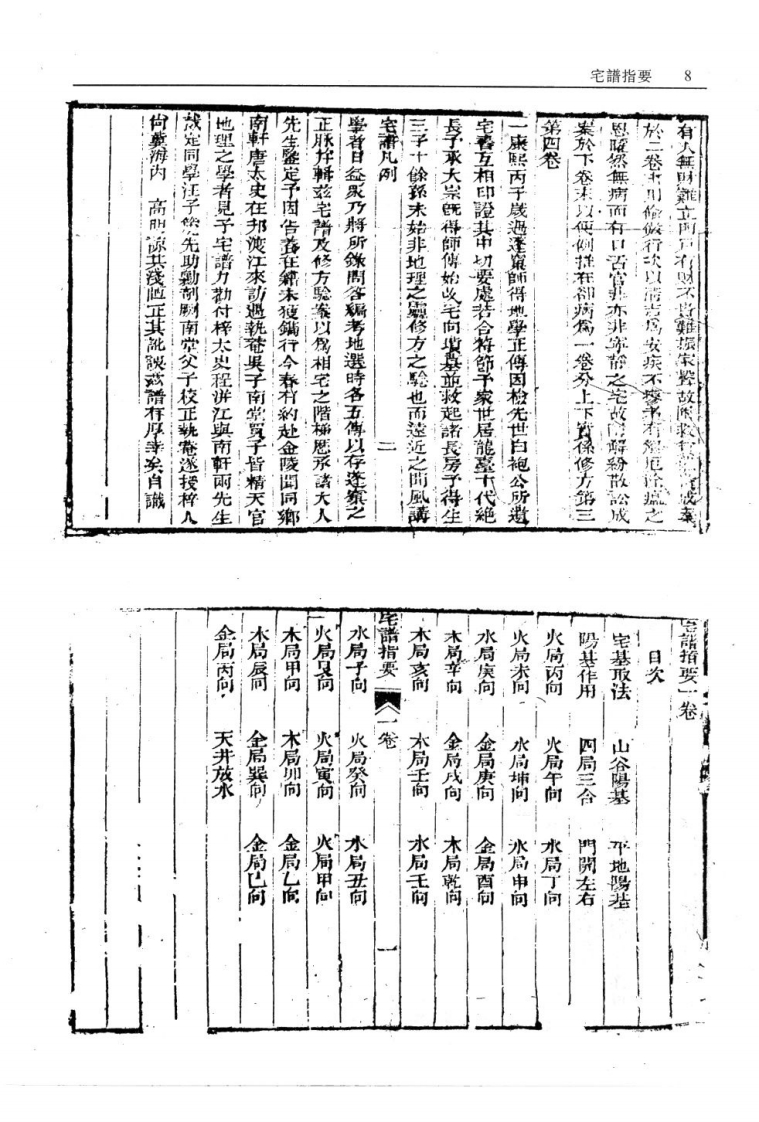 宅譜指要 8
有人無財難立門戶有財不貴難振家聲故
於二卷
然無病而有口舌官非亦非寧靜之宅故解紛散訟成
案於下卷末以便例推在卻病爲一卷分上下實係修方第三
第四卷
一康熙丙子歲過蓬窠師得地學正傳因檢先世白袍公所遺
宅書互相印證其中切要處若合符節予家世居龍臺十代絶
長子承大宗既得師傳始改宅向填基並救起諸長房予得生
三子十餘孫未始非地理之靈修方之驗也而遠近之聞風講
宅譜凡例
二
學者日益衆乃將所錄問答編考地選時各五傳以存蓬窠之
正脉并輯茲宅譜及修方驗案以爲相宅之階梯歷承諸大人
先生鑒定予因告養在籍未獲鐫行今春有約赴金陵聞同鄉
南軒唐太史在邗渡江來訪遇執菴吳子南堂賈子皆精天官
地理之學者見予宅譜力勸付梓太史程洴江與南軒兩先生
裁定同學汪子條先助剞劂南堂父子校正執菴遂授梓人
尙冀海內 高明諒其淺陋正其訛誤茲譜有厚幸矣自識
宅譜指要一卷
目次
宅基取法 山谷陽基 平地陽基
陽基作用 四局三合 門開左右
火局丙向 火局午向 水局丁向
火局未向 水局坤向 水局申向
水局庚向 金局庚向 金局酉向
木局辛向 金局戌向 木局乾向
木局亥向 木局壬向 水局壬向
宅譜指要 一卷 一
水局子向 火局癸向 水局丑向
火局艮向 火局寅向 火局甲向
木局甲向 木局卯向 金局乙向
木局辰向 金局巽向 金局巳向
金局丙向 天井放水